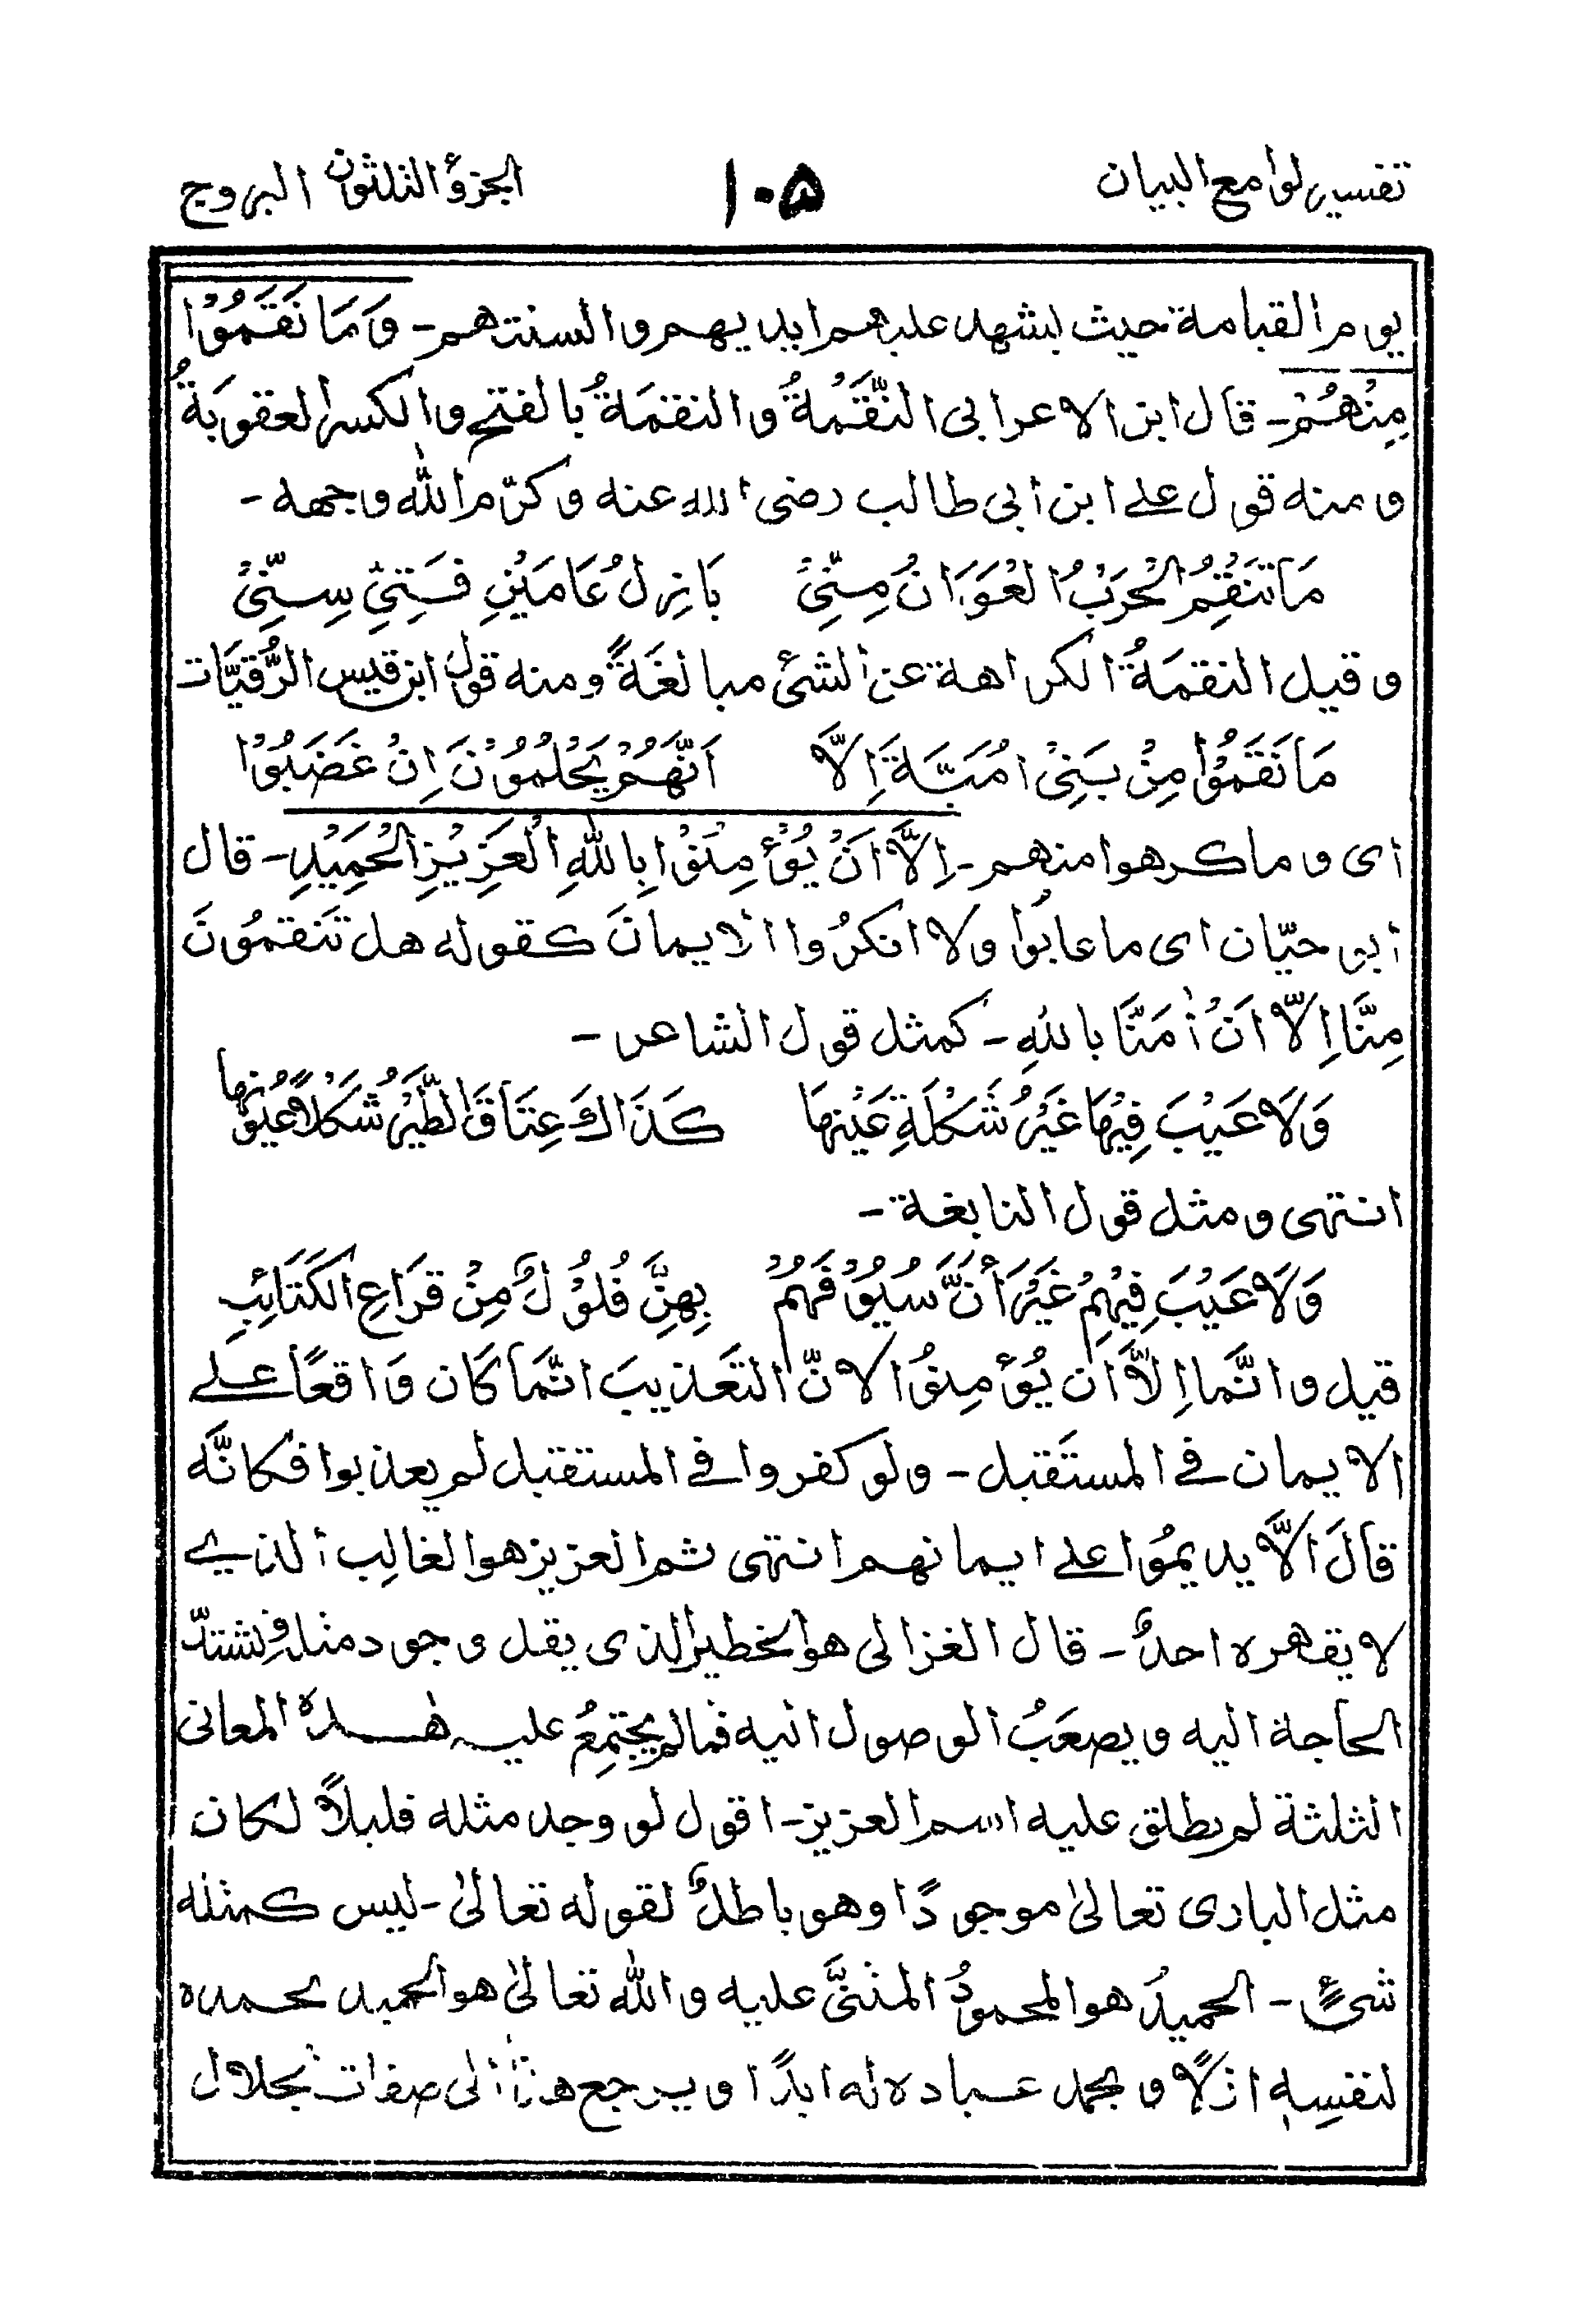 تفسير لوامع البيان
١٠۵
الجزؤ الثلثون البروج
يوم القيامة حيث ليشهد عليهم ايديهم والسنتهم - وَمَا نَقَمُوْا
مِنْهُمْ - قال ابن الاعرابى النَّقَمُةُ والنقمَةُ بالفتح والكسر العقوبَةُ
ومنه قول على ابن ابى طالب رضى الله عنه وكرّم الله وجهه -
مَا تَنَقِمُ الْحَرَبُ الْعَوَانُ مِنِّىْ بَازِلُ عَامَيْنِ فَتِىّ سِنِّىْ
وقيل النقمَةُ الكراهة عن الشئ مبالغَةً ومنه قول ابن قيس الرُّقيَّات
مَا نَقَمُوْا مِنْ بَنِىْ امُيَّةَ اِلَّا اَنَّهُمْ يَحْلُمُوْنَ اِنْ غَضَبُوْا
اى وما كرهوا منهم - اِلَّا اَنْ يُؤْمِنُوْا بِاللهِ الْعَزِيْزِ الْحَمِيْدِ - قال
ابو حيّان اى ما عابُوا ولا انكرُوا الايمانَ كقوله هل تَنقمُونَ
مِنَّا اِلَّا اَنْ اٰمَنَّا باللهِ - كمثل قول الشاعر -
وَلَا عَيْبَ فِيْهَا غَيْرُ شَكْلَةِ عَيْنِهَا كَذَاكَ عِتَاقَ الطَّيْرُ شَكْلًا عُيُوْنُهَا
انتهى ومثل قول النابغة -
وَلَا عَيْبَ فِيْهِمْ غَيْرَ أَنَّ سُيُوْفَهُمْ بِهِنَّ فُلُوْلٌ مِنْ قَرَاعِ الكَتَائِبِ
قيل وانَّما اِلَّا اَن يُؤمِنُوْا لانّ التَعَذيبَ انَّما كَان وَاقعًا على
الايمان فى المستَقبل - ولو كفروا فى المستقبل لم يعذبوا فكانَّه
قَالَ الَّا يديمُوا على ايمانهم انتهى ثم العزيز هو الغالِب الذى
لا يقهره احدٌ - قال الغزالى هو الخطير الذى يقل وجود مثله وتشتدّ
الحاجة اليه ويصعَبُ الوصول اليه فمالم يجتمِعُ عليه هٰذه المعانى
الثلثة لم يطلق عليه اسم العزيز - اقول لو وجد مثله قليلاً لكان
مثل البارى تعالىٰ موجودًا وهو باطلٌ لقوله تعالىٰ - ليس كمثله
شئٌ - الحميدُ هو المحمودُ المثنىَّ عليه والله تعالىٰ هو الحميد بحمده
لنفسِهٖ ازلًا وبحمد عباده له ابدًا ويرجع هذا الى صفات الجلال